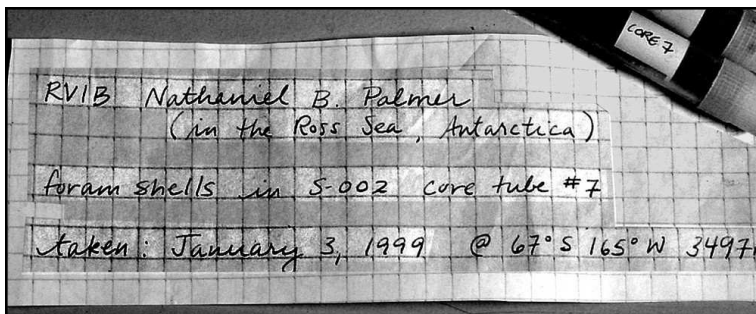 CORE 7
RVIB Nathaniel B. Palmer
(in the Ross Sea, Antarctica)
foram shells in S-002 core tube #7
taken: January 3, 1999 @ 67° S 165° W 3497